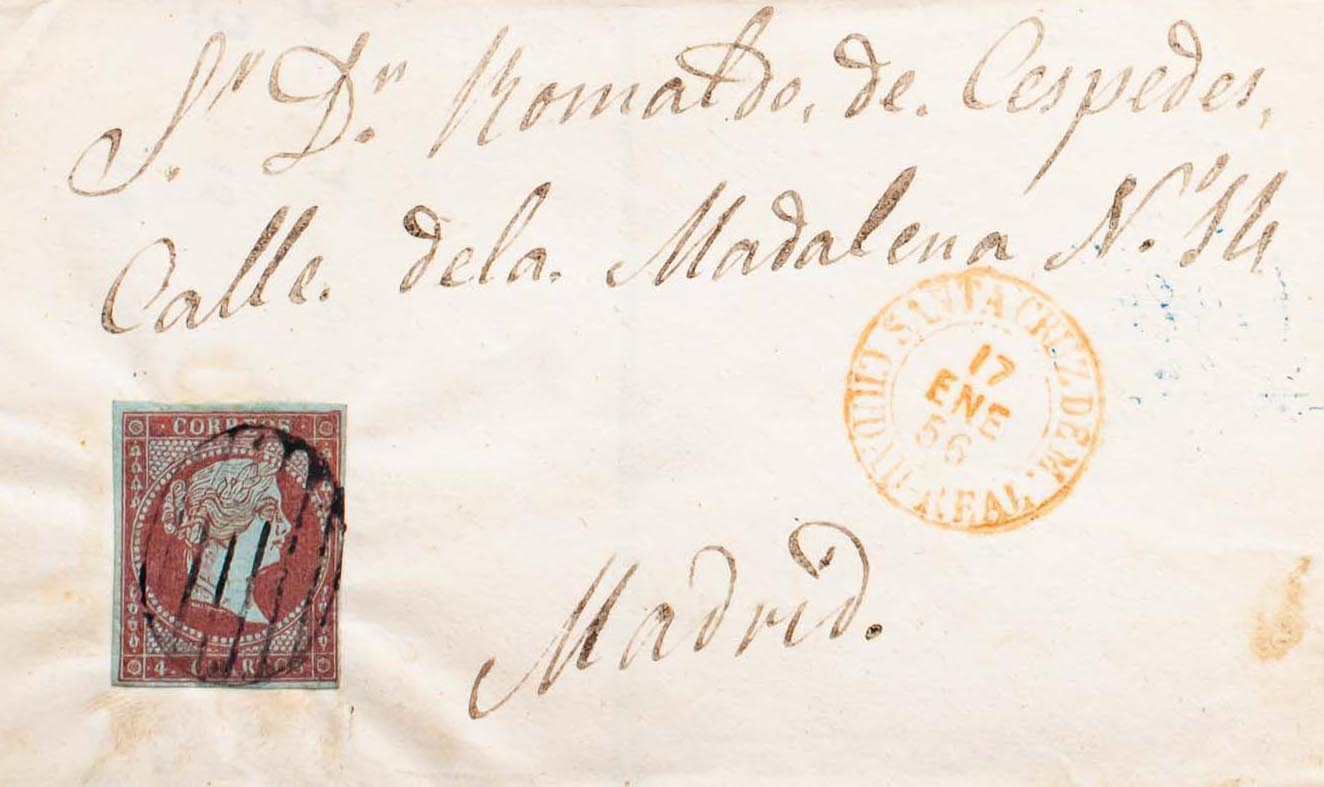 Sr. Dn. Romaldo. de. Cespedes.
Calle. dela. Madalena N.º 14
SANTA CRUZ. DE M.
17
ENE
56
CIUDAD-REAL.
CORREOS
4. CUARTOS
Madrid.